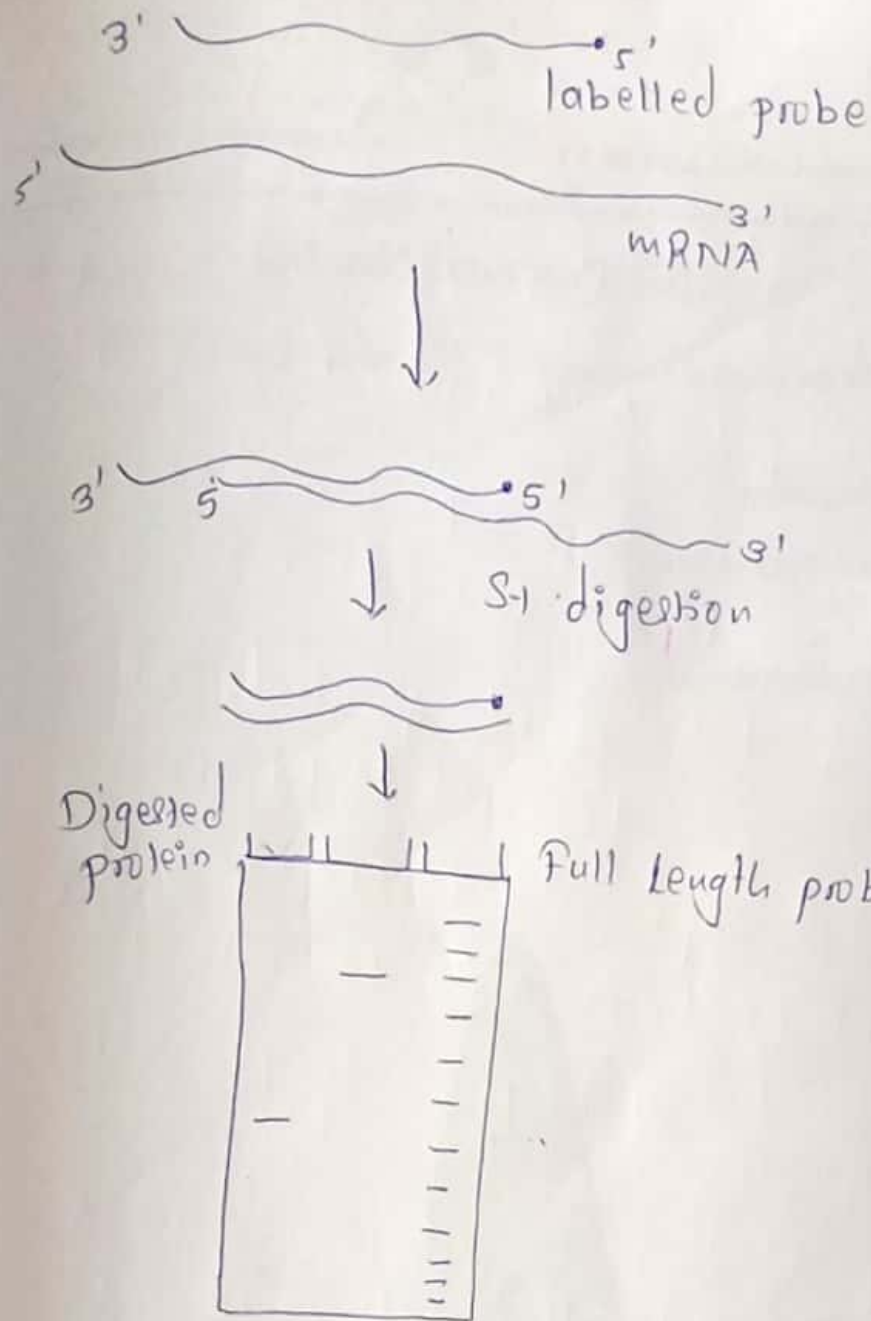 3' 5'
labelled probe
5' 3'
mRNA
3' 5 5' 3'
S-1 digestion
Digested
protein
Full Length